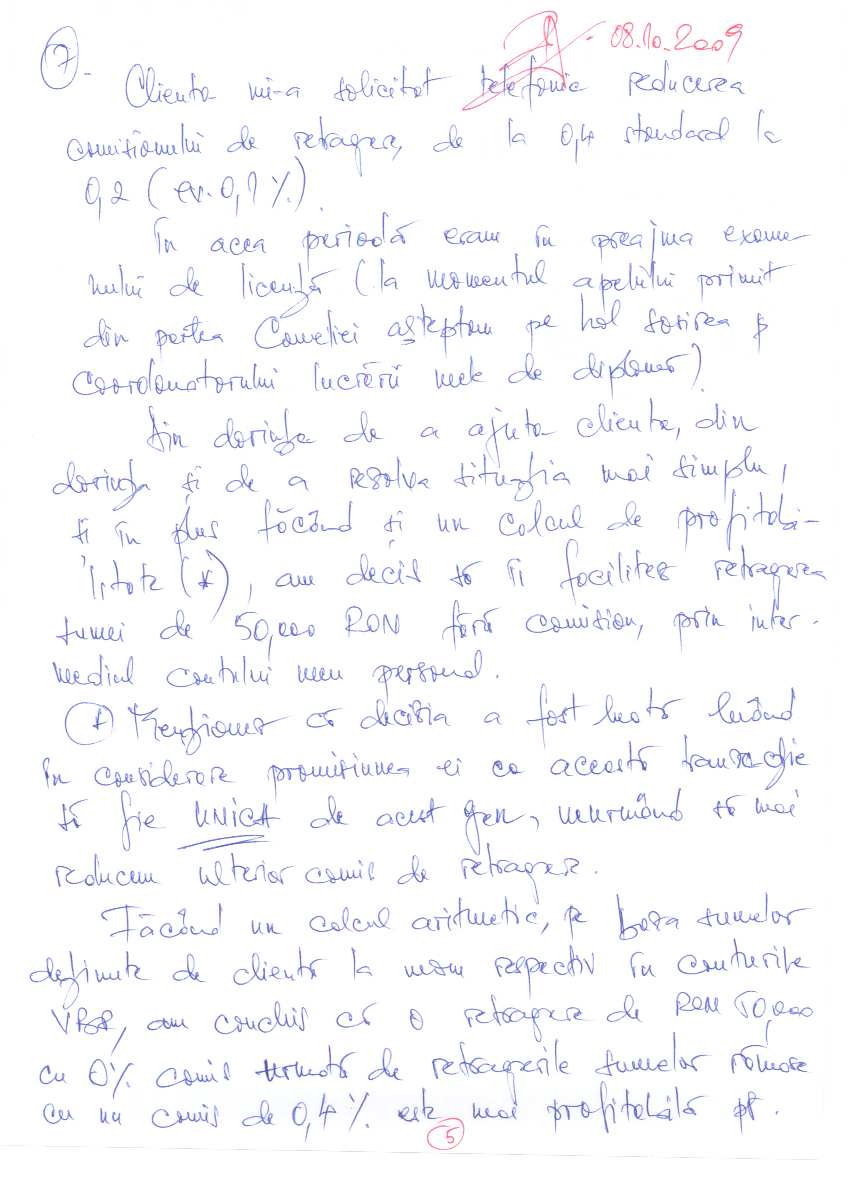 08.10.2009
7- Clienta mi-a solicitat telefonic reducerea
comisionului de retragere, de la 0,4 standard la
0,2 (ev. 0,1%).
În acea periodă eram în preajma exame-
nului de licență (la momentul apelului primit
din partea Corneliei așteptam pe hol sosirea
coordonatorului lucrării mele de diplomă)
Din dorința de a ajuta clienta, din
dorința și de a rezolva situația mai simplu,
și în plus făcând și un calcul de profitabi-
litate (*), am decis să îi facilitez retragerea
sumei de 50,000 RON fără comision, prin inter-
mediul contului meu personal.
(*) Menționez că decizia a fost luată luând
în considerare promisiunea ei ca această tranzacție
să fie UNICĂ de acest gen, neurmând să mai
reducem ulterior comis de retragere.
Făcând un calcul aritmetic, pe baza sumelor
deținute de clientă la mom respectiv în conturile
VBR, am conchis că o retragere de RON 50,000
cu 0% comis urmată de retragerile sumelor rămase
cu un comis de 0,4% este mai profitabilă pt.
5